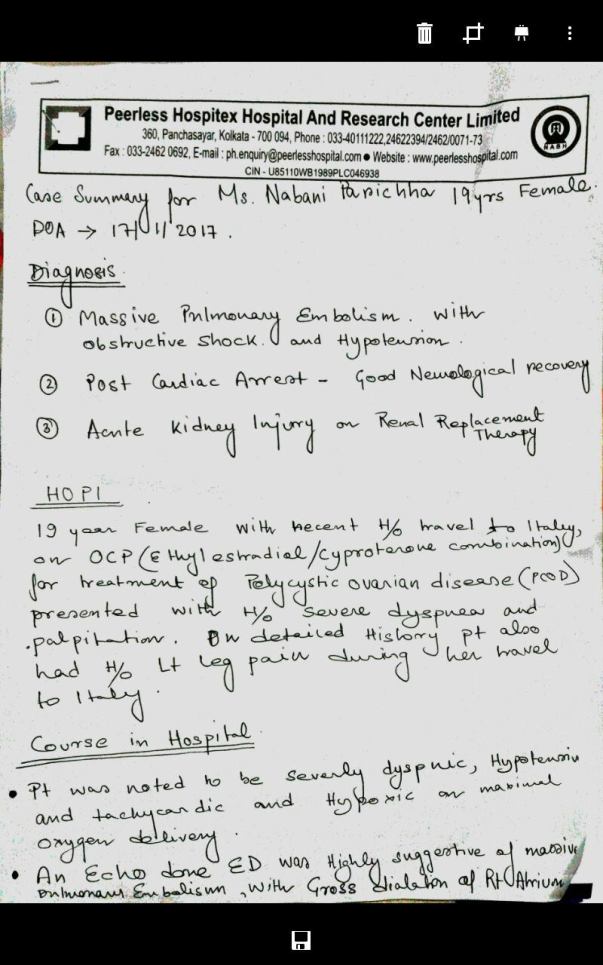 Peerless Hospitex Hospital And Research Center Limited
360, Panchasayar, Kolkata - 700 094, Phone : 033-40111222,24622394/2462/0071-73
Fax : 033-2462 0692, E-mail : ph.enquiry@peerlesshospital.com ● Website : www.peerlesshospital.com
CIN - U85110WB1989PLC046938
NABH
Case Summary for Ms. Nabani Parichha 19 yrs Female.
DOA → 17/ 1/ 2017.
Diagnosis.
① Massive Pulmonary Embolism. with
obstructive shock. and Hypotension.
② Post Cardiac Arrest – Good Neurological recovery
③ Acute Kidney Injury on Renal Replacement
Therapy
HOPI
19 year Female with recent H/o travel to Italy,
on OCP (Ethyl estradial/cyproterone combination)
for treatment of Polycystic ovarian disease (PCOD)
presented with H/o severe dyspnea and
palpitation. On detailed History pt also
had H/o Lt leg pain during her travel
to Italy.
Course in Hospital
• Pt was noted to be severly dyspnic, Hypotensiv
and tachycardic and Hypoxic on maximal
oxygen delivery.
• An Echo done ED was Highly suggestive of massive
Pulmonary Embolism, with Gross dialation of Rt Atrium